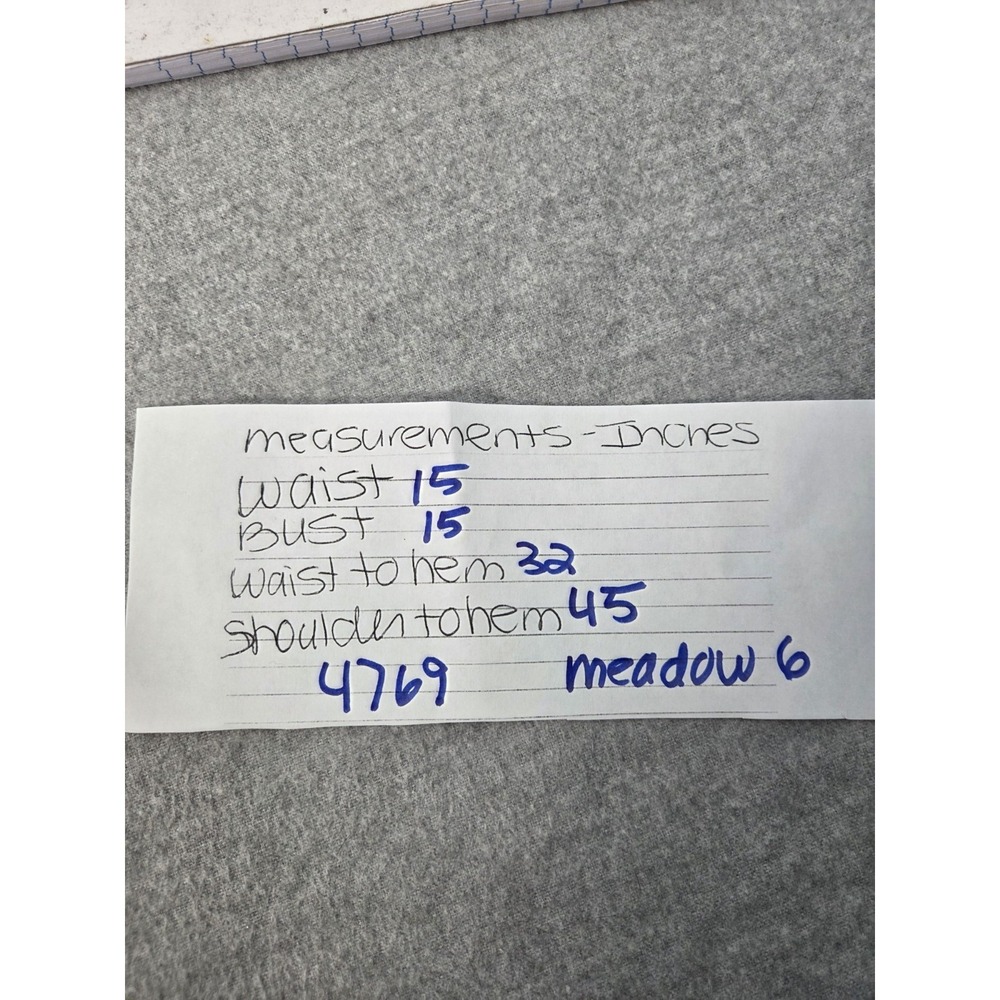 measurements - Inches
waist 15
Bust 15
waist to hem 32
shoulder to hem 45
4769 meadow 6